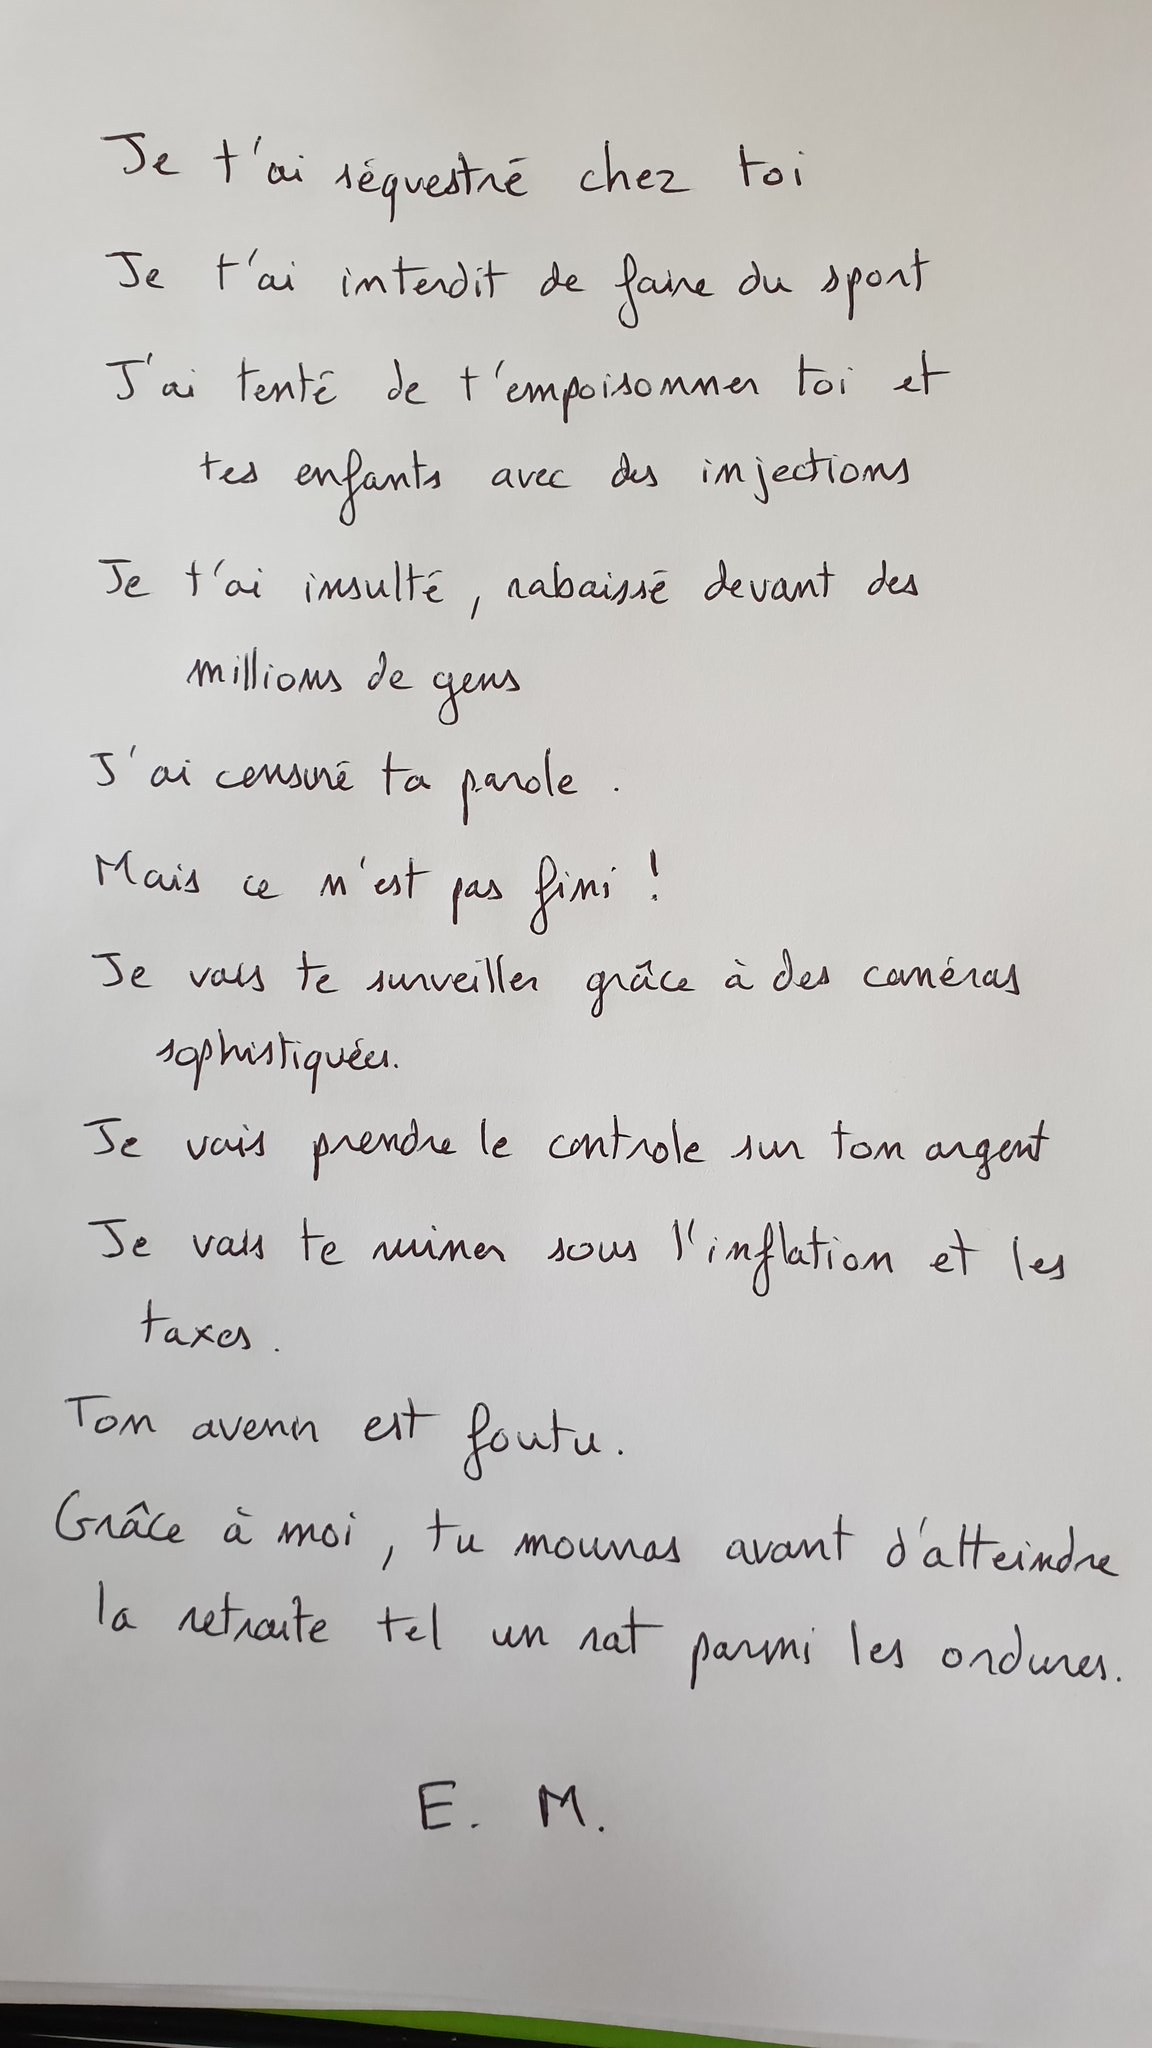 Je t'ai séquestré chez toi
Je t'ai interdit de faire du sport
J'ai tenté de t'empoisonner toi et
tes enfants avec des injections
Je t'ai insulté, rabaissé devant des
millions de gens
J'ai censuré ta parole.
Mais ce n'est pas fini !
Je vais te surveiller grâce à des caméras
sophistiquées.
Je vais prendre le controle sur ton argent
Je vais te ruiner sous l'inflation et les
taxes.
Ton avenir est foutu.
Grâce à moi, tu mourras avant d'atteindre
la retraite tel un rat parmi les ordures.
E. M.